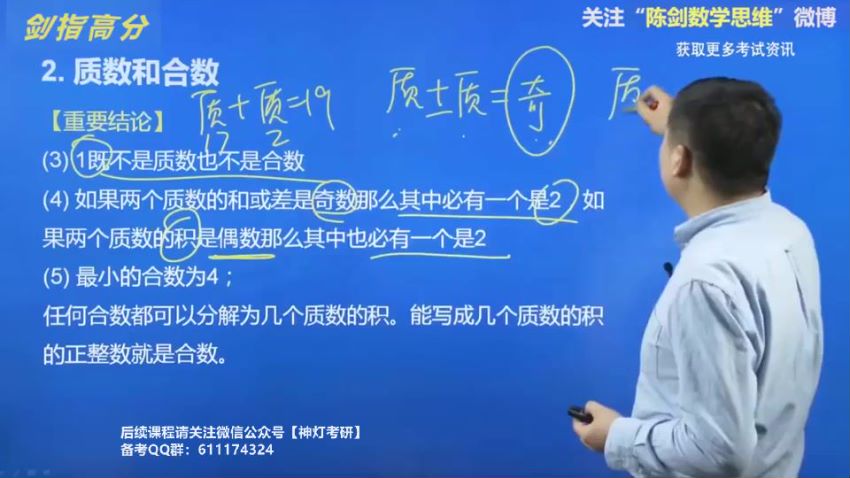 剑指高分
关注“陈剑数学思维”微博
获取更多考试资讯
2. 质数和合数
质+质=19
17 2
质±质=奇
质
【重要结论】
(3) 1既不是质数也不是合数
(4) 如果两个质数的和或差是奇数那么其中必有一个是2 如
果两个质数的积是偶数那么其中也必有一个是2
(5) 最小的合数为4；
任何合数都可以分解为几个质数的积。能写成几个质数的积
的正整数就是合数。
后续课程请关注微信公众号【神灯考研】
备考QQ群：611174324